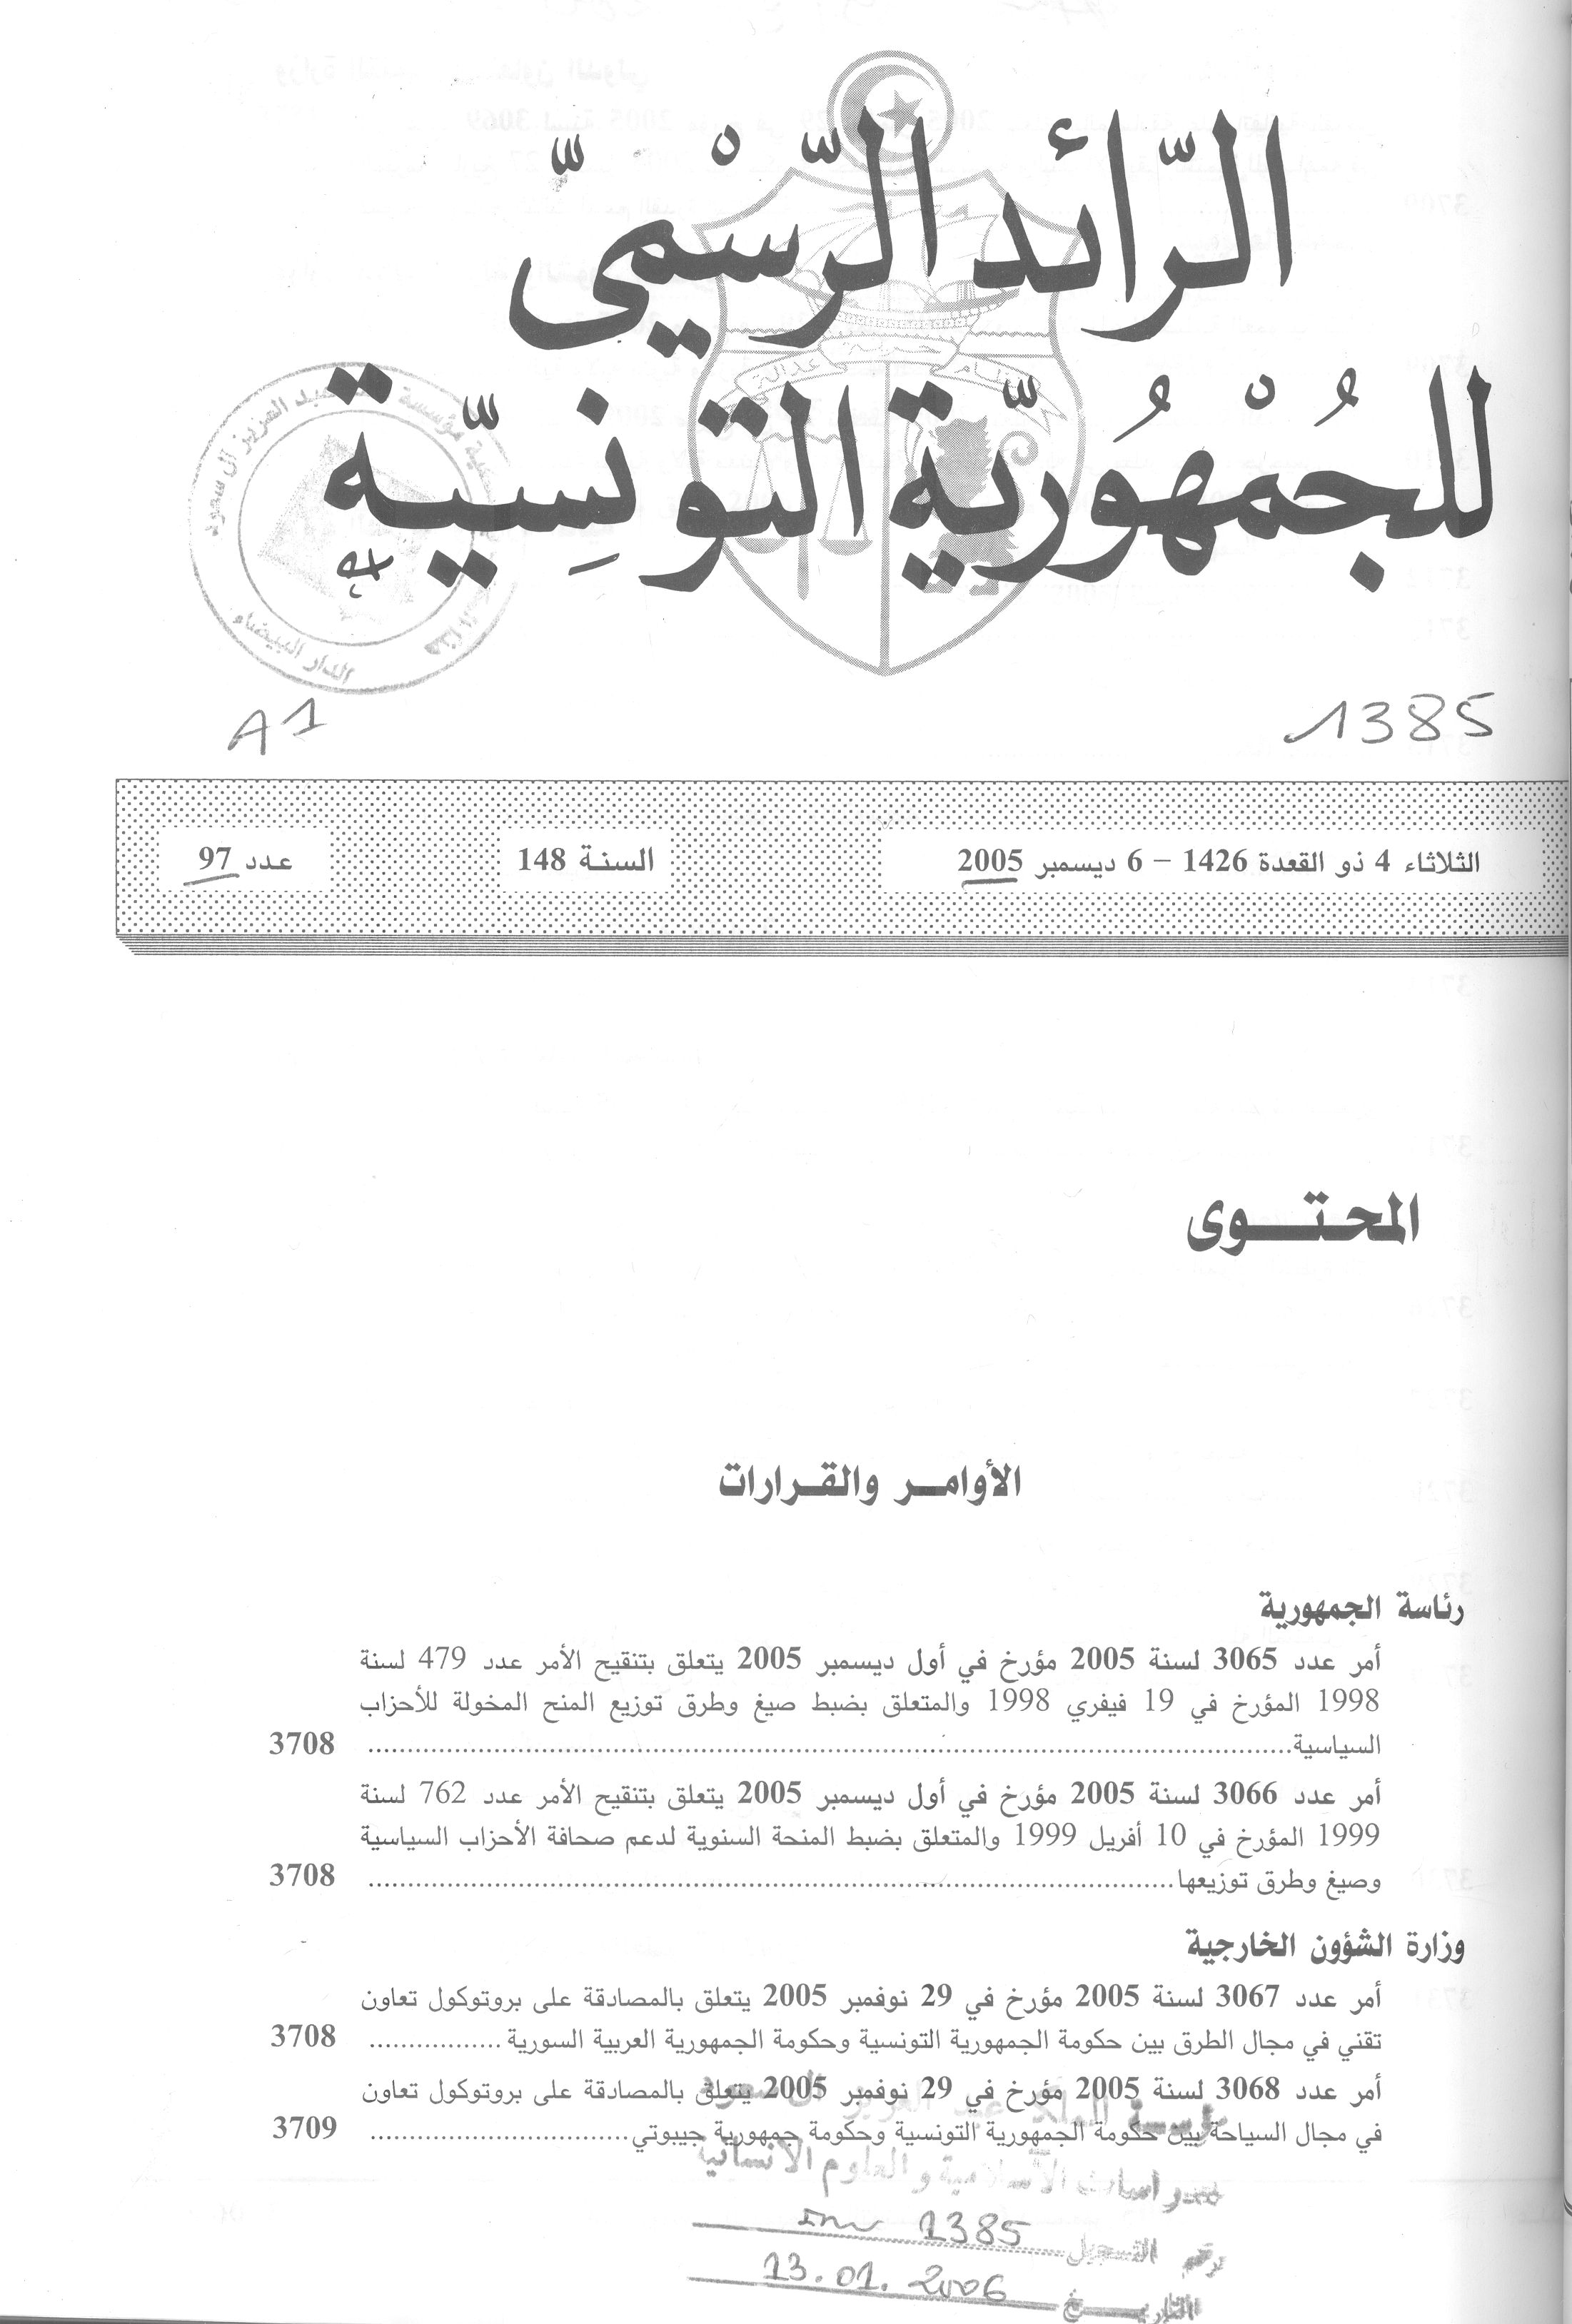 الرّائد الرّسْميّ
للجُمْهُوريّة التّونِسيّة
نظام حرية عدالة
مؤسسة الملك عبد العزيز آل سعود
الدار البيضاء
A1
1385
الثلاثاء 4 ذو القعدة 1426 – 6 ديسمبر 2005
السنة 148
عدد 97
المحتوى
الأوامر والقرارات
رئاسة الجمهورية
أمر عدد 3065 لسنة 2005 مؤرخ في أول ديسمبر 2005 يتعلق بتنقيح الأمر عدد 479 لسنة
1998 المؤرخ في 19 فيفري 1998 والمتعلق بضبط صيغ وطرق توزيع المنح المخولة للأحزاب
السياسية.......... 3708
أمر عدد 3066 لسنة 2005 مؤرخ في أول ديسمبر 2005 يتعلق بتنقيح الأمر عدد 762 لسنة
1999 المؤرخ في 10 أفريل 1999 والمتعلق بضبط المنحة السنوية لدعم صحافة الأحزاب السياسية
وصيغ وطرق توزيعها.......... 3708
وزارة الشؤون الخارجية
أمر عدد 3067 لسنة 2005 مؤرخ في 29 نوفمبر 2005 يتعلق بالمصادقة على بروتوكول تعاون
تقني في مجال الطرق بين حكومة الجمهورية التونسية وحكومة الجمهورية العربية السورية.......... 3708
أمر عدد 3068 لسنة 2005 مؤرخ في 29 نوفمبر 2005 يتعلق بالمصادقة على بروتوكول تعاون
في مجال السياحة بين حكومة الجمهورية التونسية وحكومة جمهورية جيبوتي.......... 3709
مؤسسة الملك عبد العزيز آل سعود
للدراسات الاسلامية والعلوم الانسانية
رقم التسجيل Inv 1385
التاريخ 13.01.2006